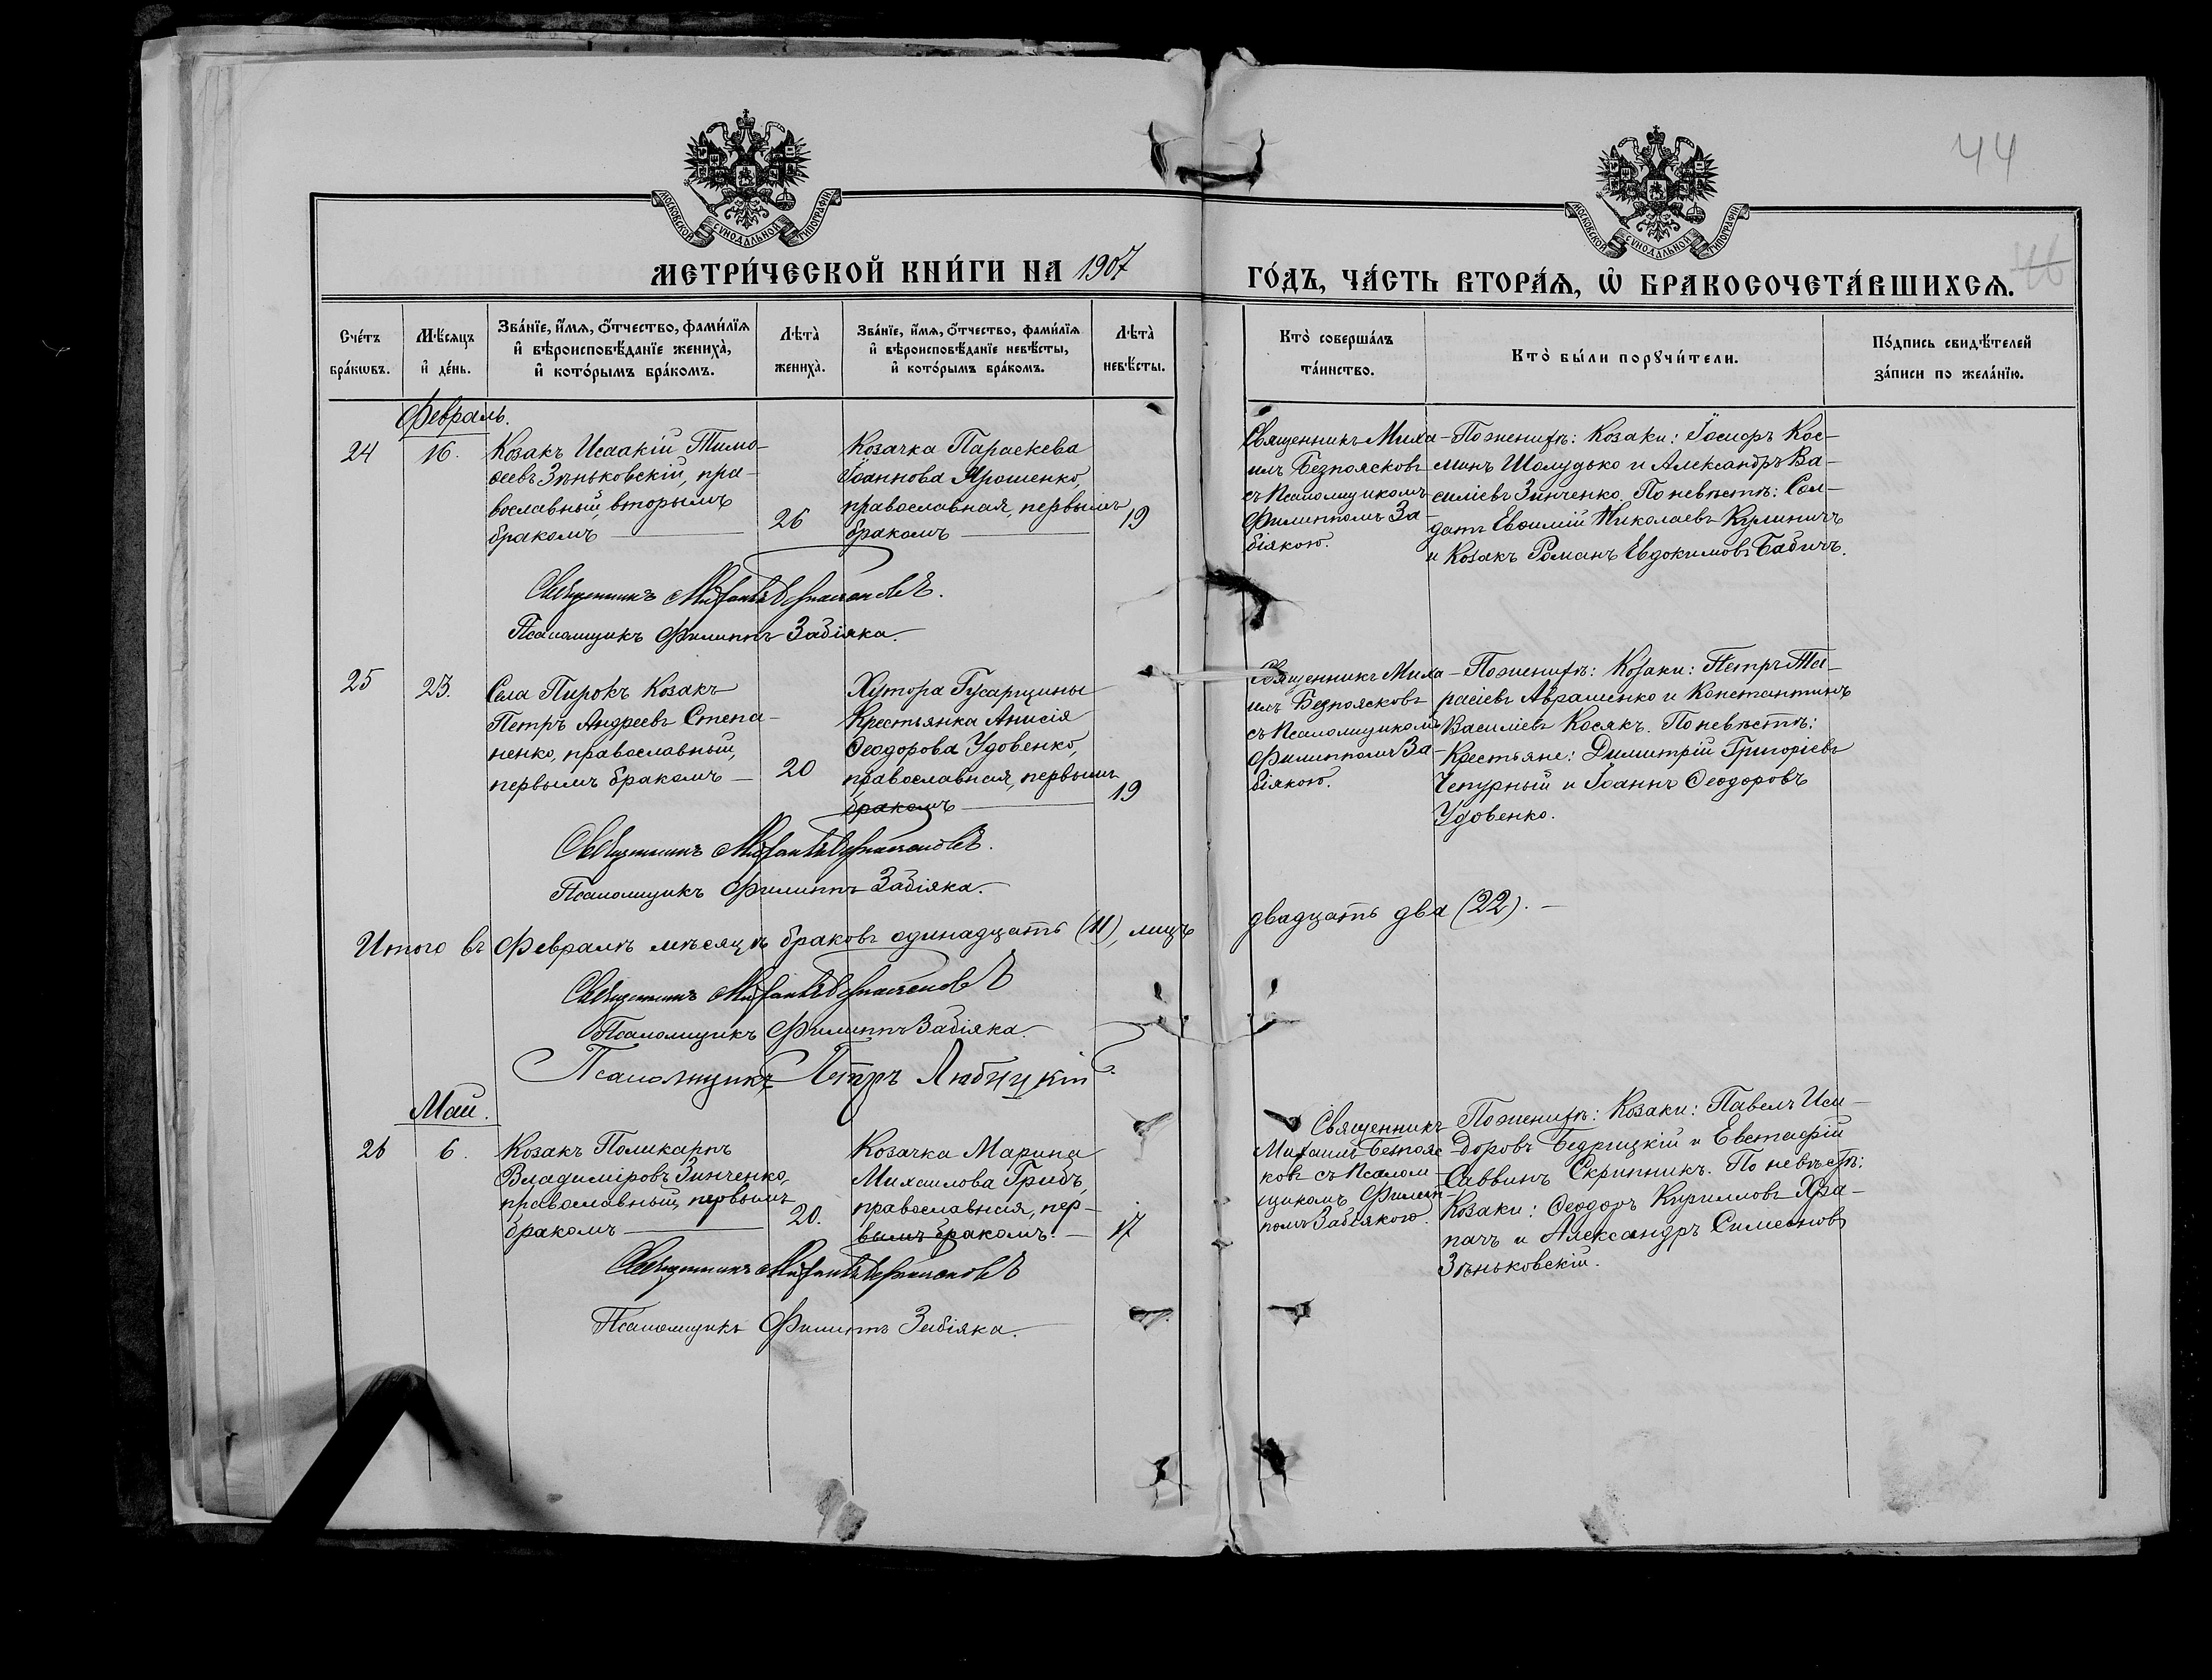 44
МОСКОВСКОЙ СѴНОДАЛЬНОЙ ТИПОГРАФІИ
МОСКОВСКОЙ СѴНОДАЛЬНОЙ ТИПОГРАФІИ
МЕТРИ́ЧЕСКОЙ КНИ́ГИ НА 1907
ГО́ДЪ, ЧА́СТЬ ВТОРА́Ѧ, Ѡ҆ БРАКОСОЧЕТА́ВШИХСѦ.
46
Сче́тъ бра́кѡвъ.
Мѣ́сяцъ и҆ де́нь.
Зва́нїе, и҆́мѧ, ѻ҆́тчество, фами́лїѧ и҆ вѣроисповѣ́данїе жениха̀, и҆ кото́рымъ бра́комъ.
Лѣта̀ жениха̀.
Зва́нїе, и҆́мѧ, ѻ҆́тчество, фами́лїѧ и҆ вѣроисповѣ́данїе невѣ́сты, и҆ кото́рымъ бра́комъ.
Лѣта̀ невѣ́сты.
Кто̀ соверша́лъ та́инство.
Кто̀ бы́ли порꙋчи́тели.
По́дпись свидѣ́телей за́писи по жела́нїю.
Февраль.
24
16.
Козакъ Исаакій Тимо-
ѳеевъ Зѣньковскій, пра-
вославный, вторымъ
бракомъ
26
Козачка Параскева
Іоаннова Ярошенко,
православная, первымъ
бракомъ
19
Священникъ Миха-
илъ Безпоясковъ
съ Псаломщикомъ
Филиппомъ За-
біякою.
По женихѣ: Козаки: Іосифъ Кос-
минъ Шолудько и Александръ Ва-
силіевъ Зинченко. По невѣстѣ: Сол-
датъ Евѳимій Николаевъ Кулиничъ
и Козакъ Романъ Евдокимовъ Бабичъ.
Священникъ Михаилъ Безпоясковъ.
Псаломщикъ Филиппъ Забіяка.
25
23.
Села Пирокъ Козакъ
Петръ Андреевъ Степа-
ненко, православный,
первымъ бракомъ
20
Хутора Гусарщины
Крестьянка Анисія
Ѳеодорова Удовенко,
православная, первымъ
бракомъ
19
Священникъ Миха-
илъ Безпоясковъ
съ Псаломщикомъ
Филиппомъ За-
біякою.
По женихѣ: Козаки: Петръ Та-
расіевъ Авраменко и Константинъ
Василіевъ Косякъ. По невѣстѣ:
Крестьяне: Димитрій Григоріевъ
Чепурный и Іоаннъ Ѳеодоровъ
Удовенко.
Священникъ Михаилъ Безпоясковъ.
Псаломщикъ Филиппъ Забіяка.
Итого въ Февралѣ мѣсяцѣ браковъ одинадцать (11), лицъ двадцать два (22).
Священникъ Михаилъ Безпоясковъ
Псаломщикъ Филиппъ Забіяка.
Псаломщикъ Петръ Любицкій
Май.
26
6.
Козакъ Поликарпъ
Владиміровъ Зинченко,
православный, первымъ
бракомъ
20.
Козачка Марина
Михаилова Грибъ,
православная, пер-
вымъ бракомъ.
17
Священникъ
Михаилъ Безпояс
ковъ съ Псалом-
щикомъ Филип-
помъ Забіякою.
По женихѣ: Козаки: Павелъ Иси-
доровъ Бедрицкій и Евстафій
Саввинъ Скрипникъ. По невѣстѣ:
Козаки: Ѳеодоръ Кирилловъ Хра-
пачъ и Александръ Симеоновъ
Зѣньковскій.
Священникъ Михаилъ Безпоясковъ
Псаломщикъ Филиппъ Забіяка.